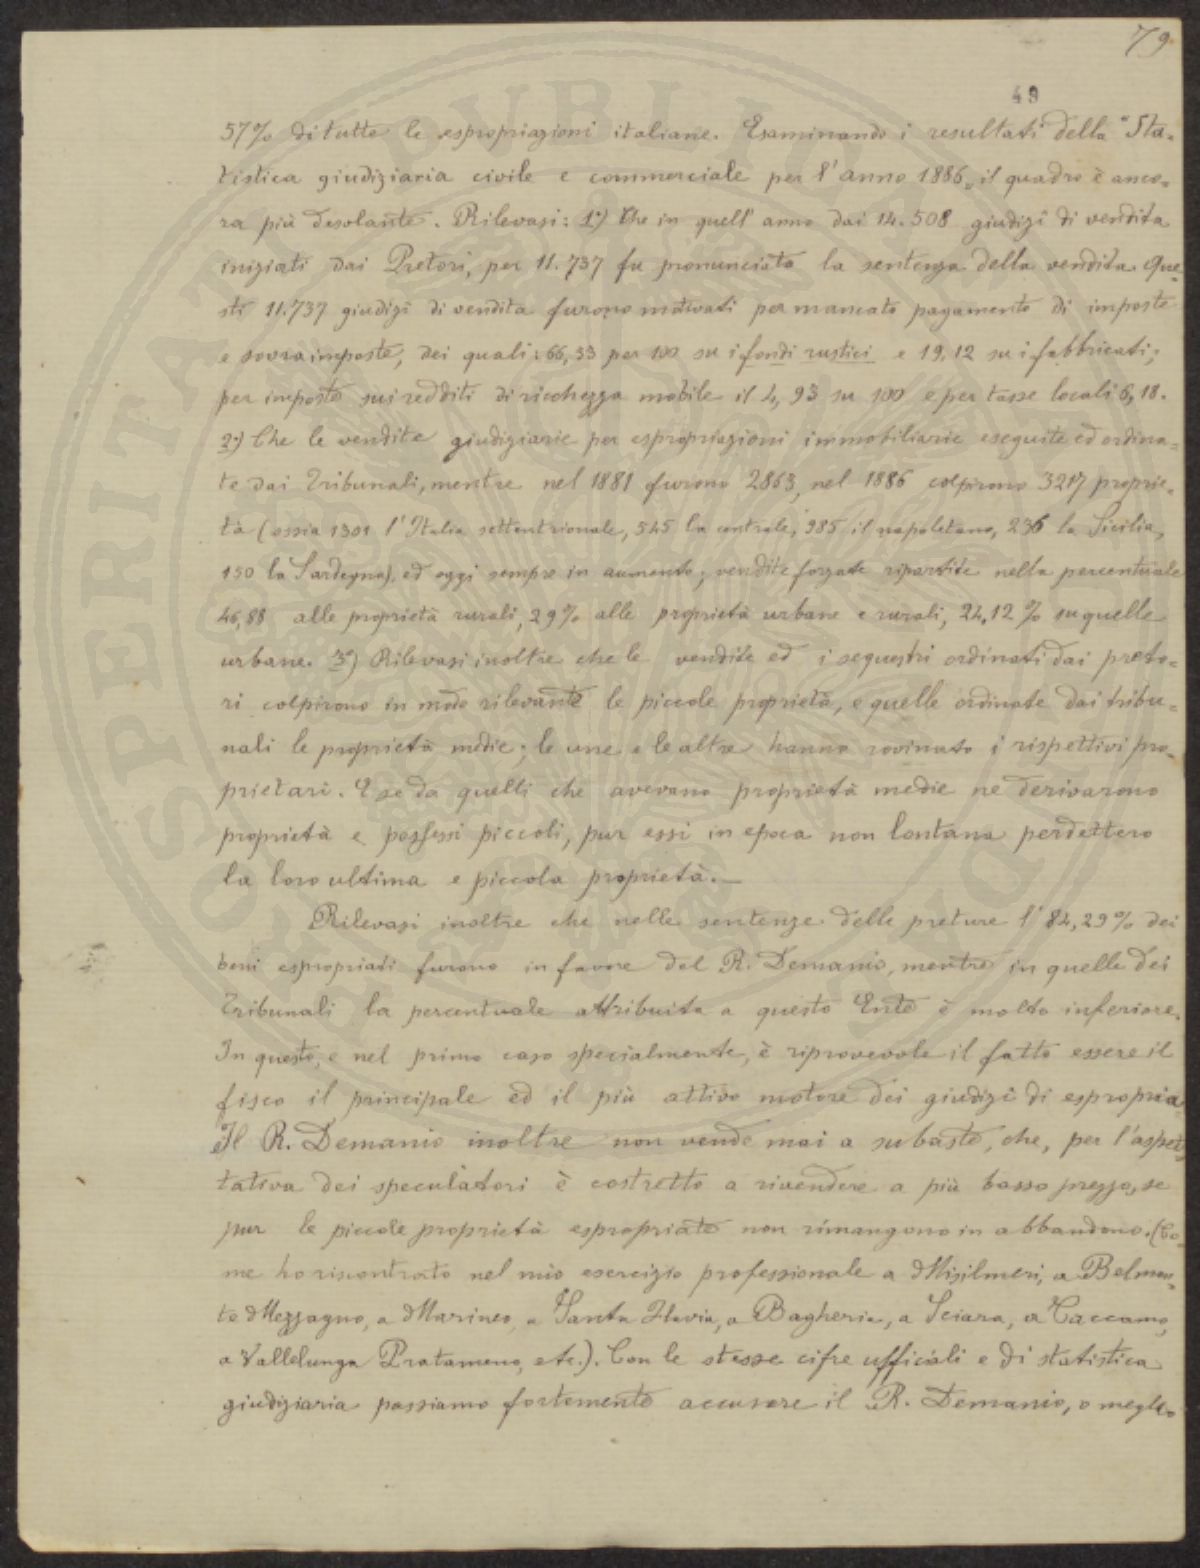 79
49
57% di tutte le espropriazioni italiane. Esaminando i resultati della "Sta-
tistica giudiziaria civile e commerciale per l'anno 1886, il quadro è anco-
ra più desolante. Rilevasi: 1°) Che in quell'anno dai 14.508 giudizi di vendita
iniziati dai Pretori, per 11.737 fu pronunciata la sentenza della vendita. Que-
sti 11.737 giudizi di vendita furono motivati per mancato pagamento di imposte
e sovraimposte, dei quali: 66,33 per 100 su i fondi rustici e 19,12 su i fabbricati;
per imposte sui redditi di ricchezza mobile il 4,93 su 100 e per tasse locali 6,18.
2°) Che le vendite giudiziarie per espropriazioni immobiliarie eseguite ed ordina-
te dai Tribunali, mentre nel 1881 furono 2863, nel 1886 colpirono 3217 proprie-
tà (ossia 1301 l'Italia settentrionale, 545 la centrale, 985 il napoletano, 236 la Sicilia,
150 la Sardegna), ed oggi sempre in aumento; vendite forzate ripartite nella percentuale
46,88 alle proprietà rurali, 29% alle proprietà urbane e rurali, 24,12% su quelle
urbane. 3°) Rilevasi inoltre che le vendite ed i sequestri ordinati dai preto-
ri colpirono in modo rilevante le piccole proprietà, e quelle ordinate dai tribu-
nali le proprietà medie; le une e le altre hanno rovinato i rispettivi pro-
prietari. E se da quelli che avevano proprietà medie ne derivarono
proprietà e possessi piccoli, pur essi in epoca non lontana perdettero
la loro ultima e piccola proprietà.—
Rilevasi inoltre che nelle sentenze delle preture l'84,29% dei
beni espropriati furono in favore del R. Demanio, mentre in quelle dei
Tribunali la percentuale attribuita a questo Ente è molto inferiore.
In questo, e nel primo caso specialmente, è riprovevole il fatto essere il
fisco il principale ed il più attivo motore dei giudizi di espropria.
Il R. Demanio inoltre non vende mai a subaste, che, per l'aspet-
tativa dei speculatori è costretto a rivendere a più basso prezzo, se
pur le piccole proprietà espropriate non rimangono in abbandono. (Co-
me ho riscontrato nel mio esercizio professionale a Misilmeri, a Belmon-
te Mezzagno, a Marineo, a Santa Flavia, a Bagheria, a Sciara, a Caccamo,
a Vallelunga Pratameno, etc.). Con le stesse cifre ufficiali e di statistica
giudiziaria possiamo fortemente accusare il R. Demanio, o meglio